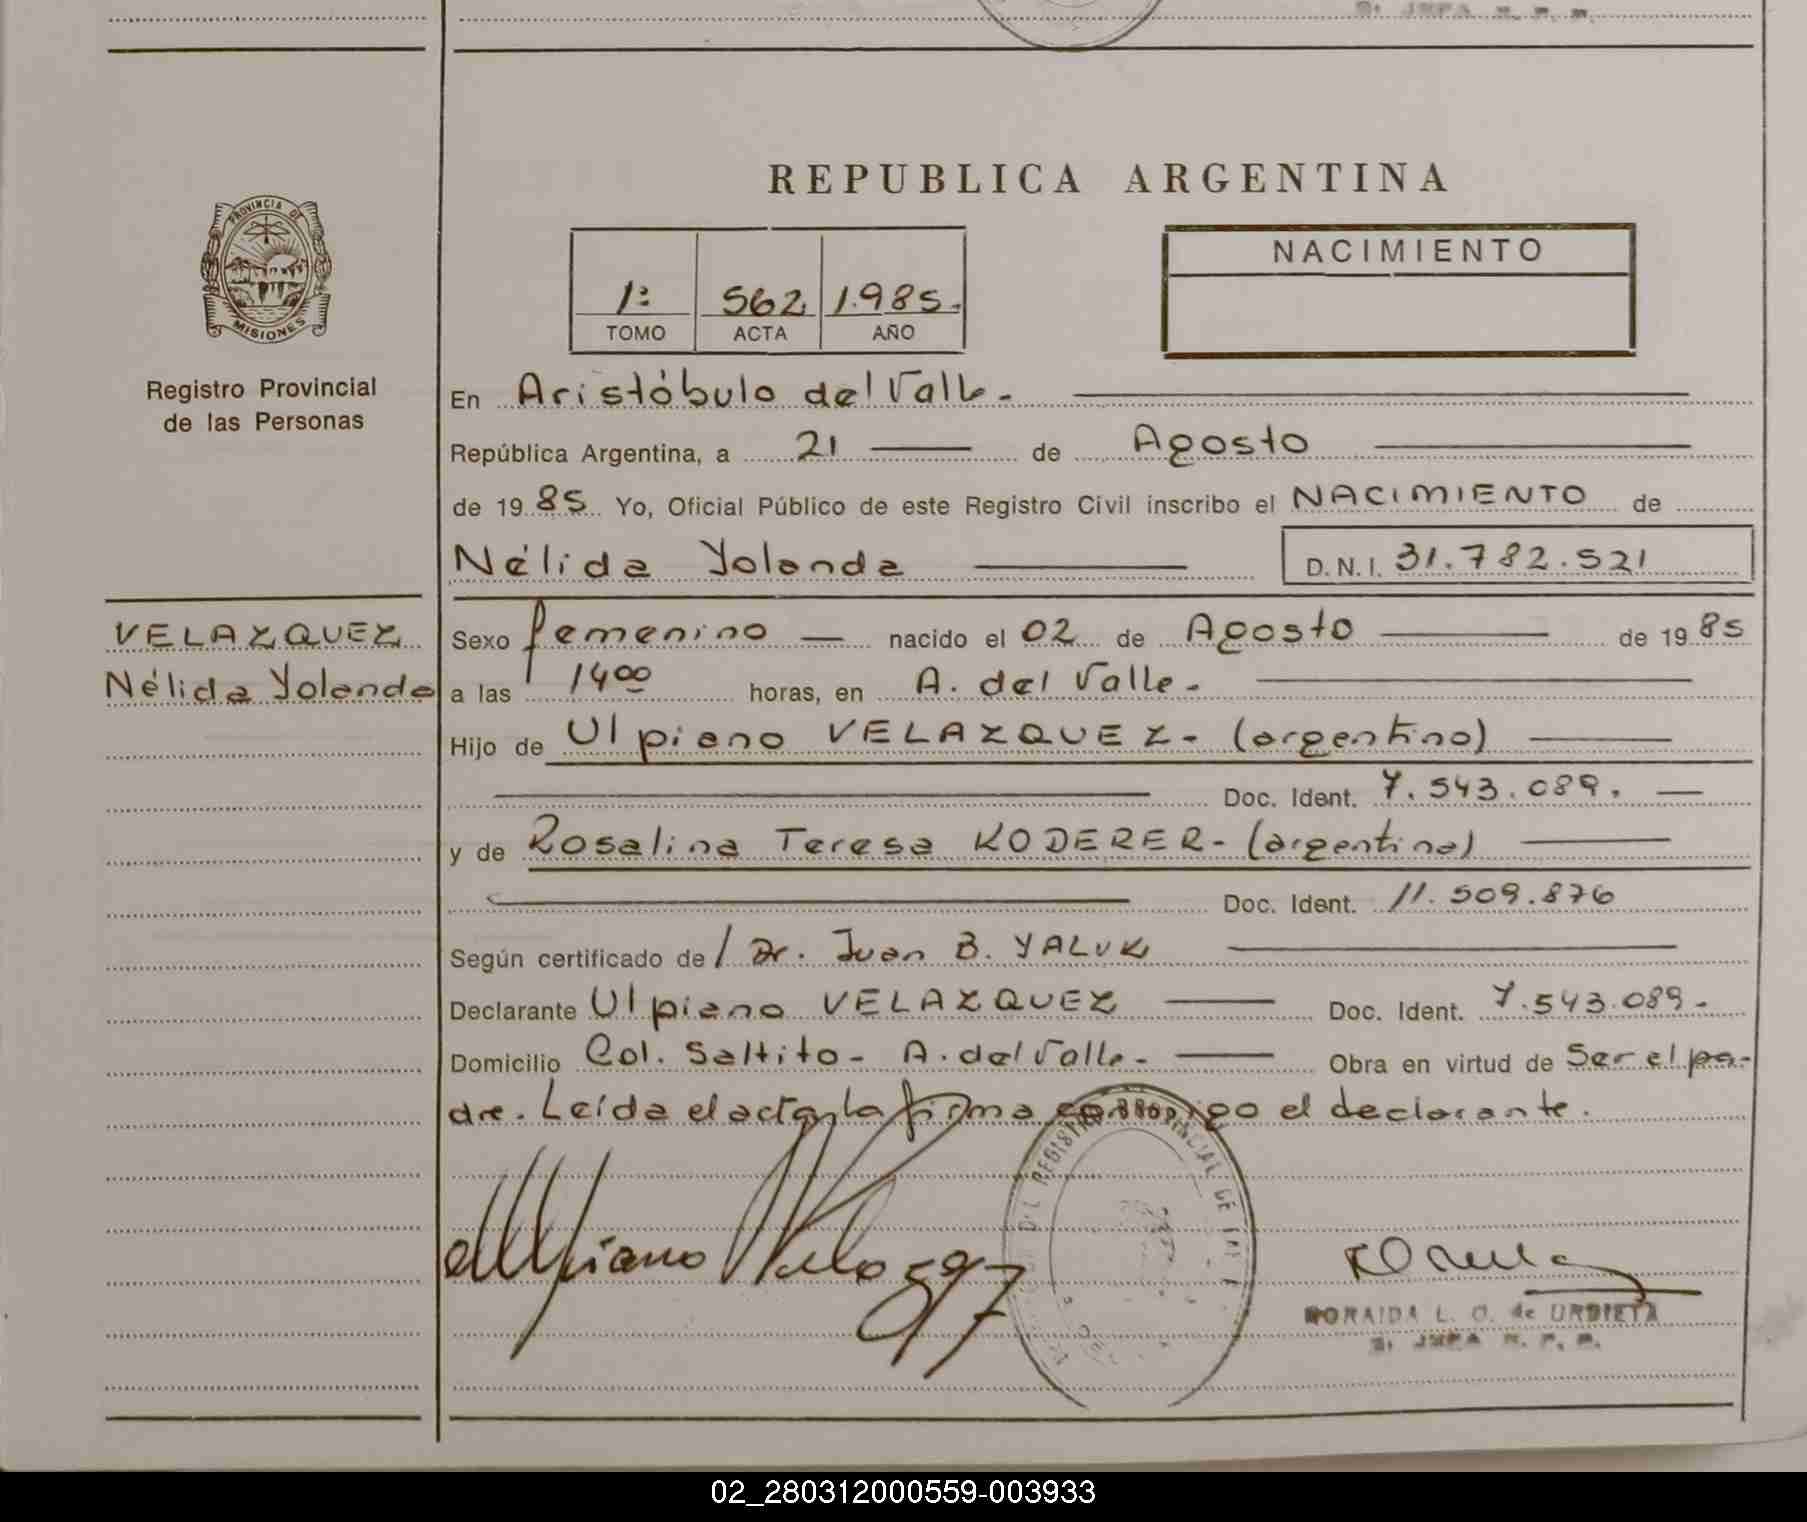 REPUBLICA ARGENTINA
PROVINCIA DE
MISIONES
Registro Provincial
de las Personas
NACIMIENTO
1º 562 1.985.
TOMO ACTA AÑO
En Aristóbulo del Valle.
República Argentina, a 21 de Agosto
de 1985 Yo, Oficial Público de este Registro Civil inscribo el NACIMIENTO de
Nélida Yolanda D.N.I. 31.782.521
VELAZQUEZ
Nélida Yolanda
Sexo femenino nacido el 02 de Agosto de 1985
a las 14⁰⁰ horas, en A. del Valle.
Hijo de Ulpiano VELAZQUEZ - (argentino)
Doc. Ident. 7.543.089.
y de Rosalina Teresa KODERER - (argentina)
Doc. Ident. 11.509.876
Según certificado de / Dr. Juan B. YALUK
Declarante Ulpiano VELAZQUEZ Doc. Ident. 7.543.089.
Domicilio Col. Saltito - A. del Valle. Obra en virtud de Ser el pa-
dre. Leída el acta, la firma conmigo el declarante.
REGISTRO PROVINCIAL DE
Ulpiano Velazquez
L. O. de URDIETA
JEFA R. P. P.
02_280312000559-003933